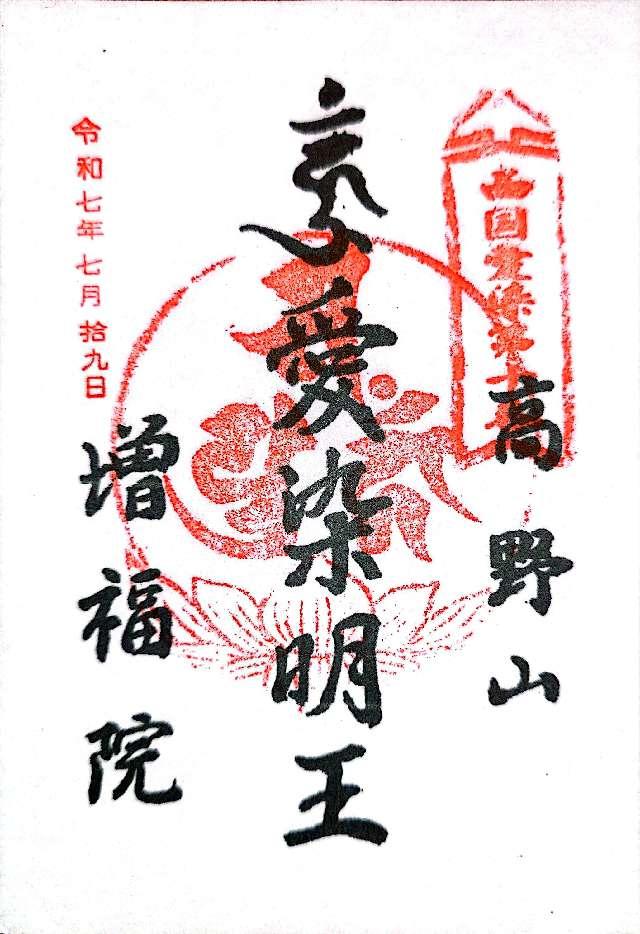 西国愛染第十番
高野山
愛染明王
増福院
令和七年七月拾九日